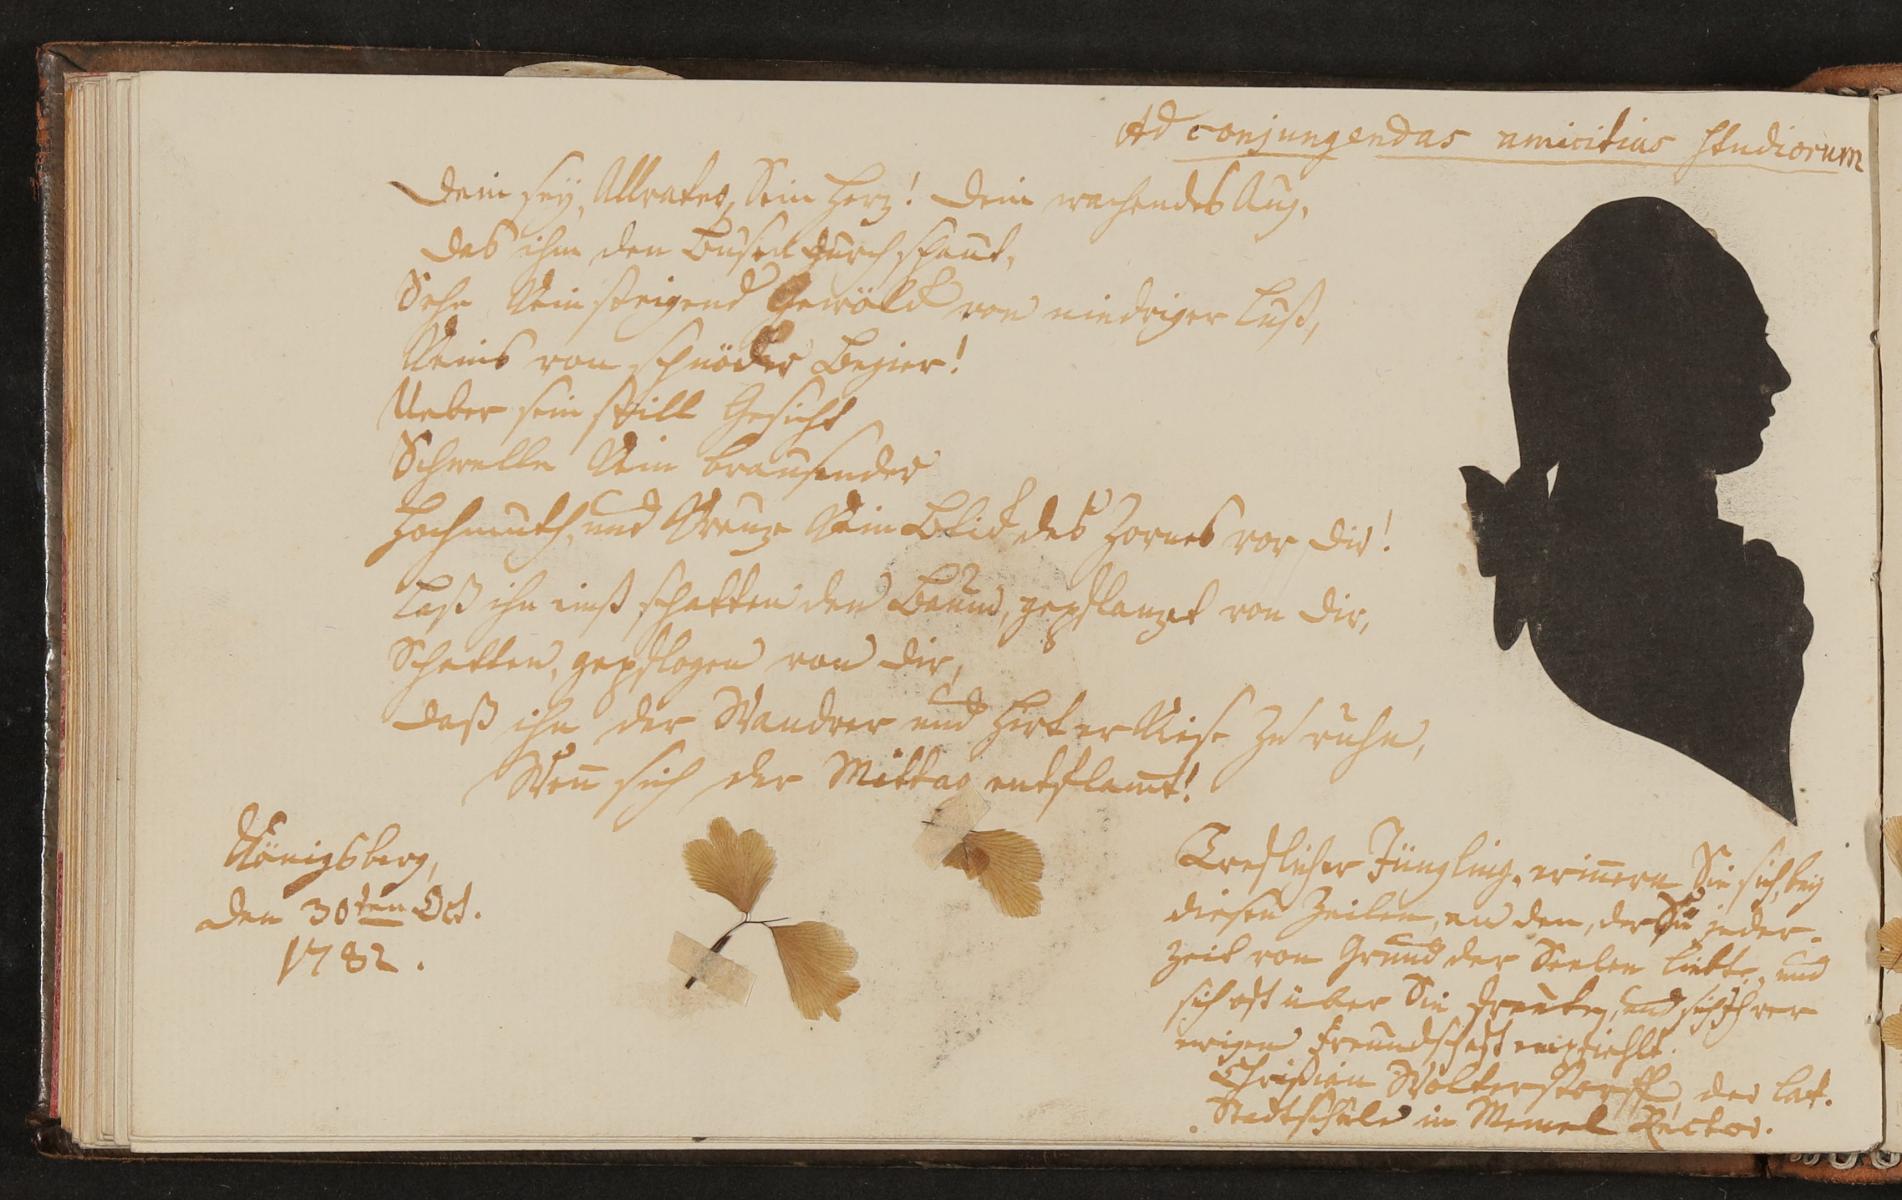 Ad conjungendas amicitias studiorum
Dein sey, Allvater, Sein Herz! Dein wachendes Aug,
Das ihm den Busen durchschaut,
Sehe Kein steigend Gewölk von niedriger Lust,
Keins von schnöder Begier!
Ueber sein still Gesicht
Schwelle Kein brausender
Hochmuth, und Kreuze Kein Blick des Zornes vor dir!
Laß ihn einst schatten den Baum, gepflanzt von dir,
Schatten, gepflogen von dir,
Daß ihn der Wandrer und Hirt erKiese zu ruhn,
Wen̄ sich der Mittag entflam̄t!
Königsberg,
den 30ten Oct.
1782.
Treflicher Jüngling, erin̄ern Sie sich bey
diesen Zeilen, an den, der Sie jeder-
zeit von Grund der Seelen liebte, und
sich oft über Sie freute, und sich Ihrer
ewigen Freundschaft empfiehlt.
Christian Woltersdorff, der lat.
Stadtschule in Memel Rector.